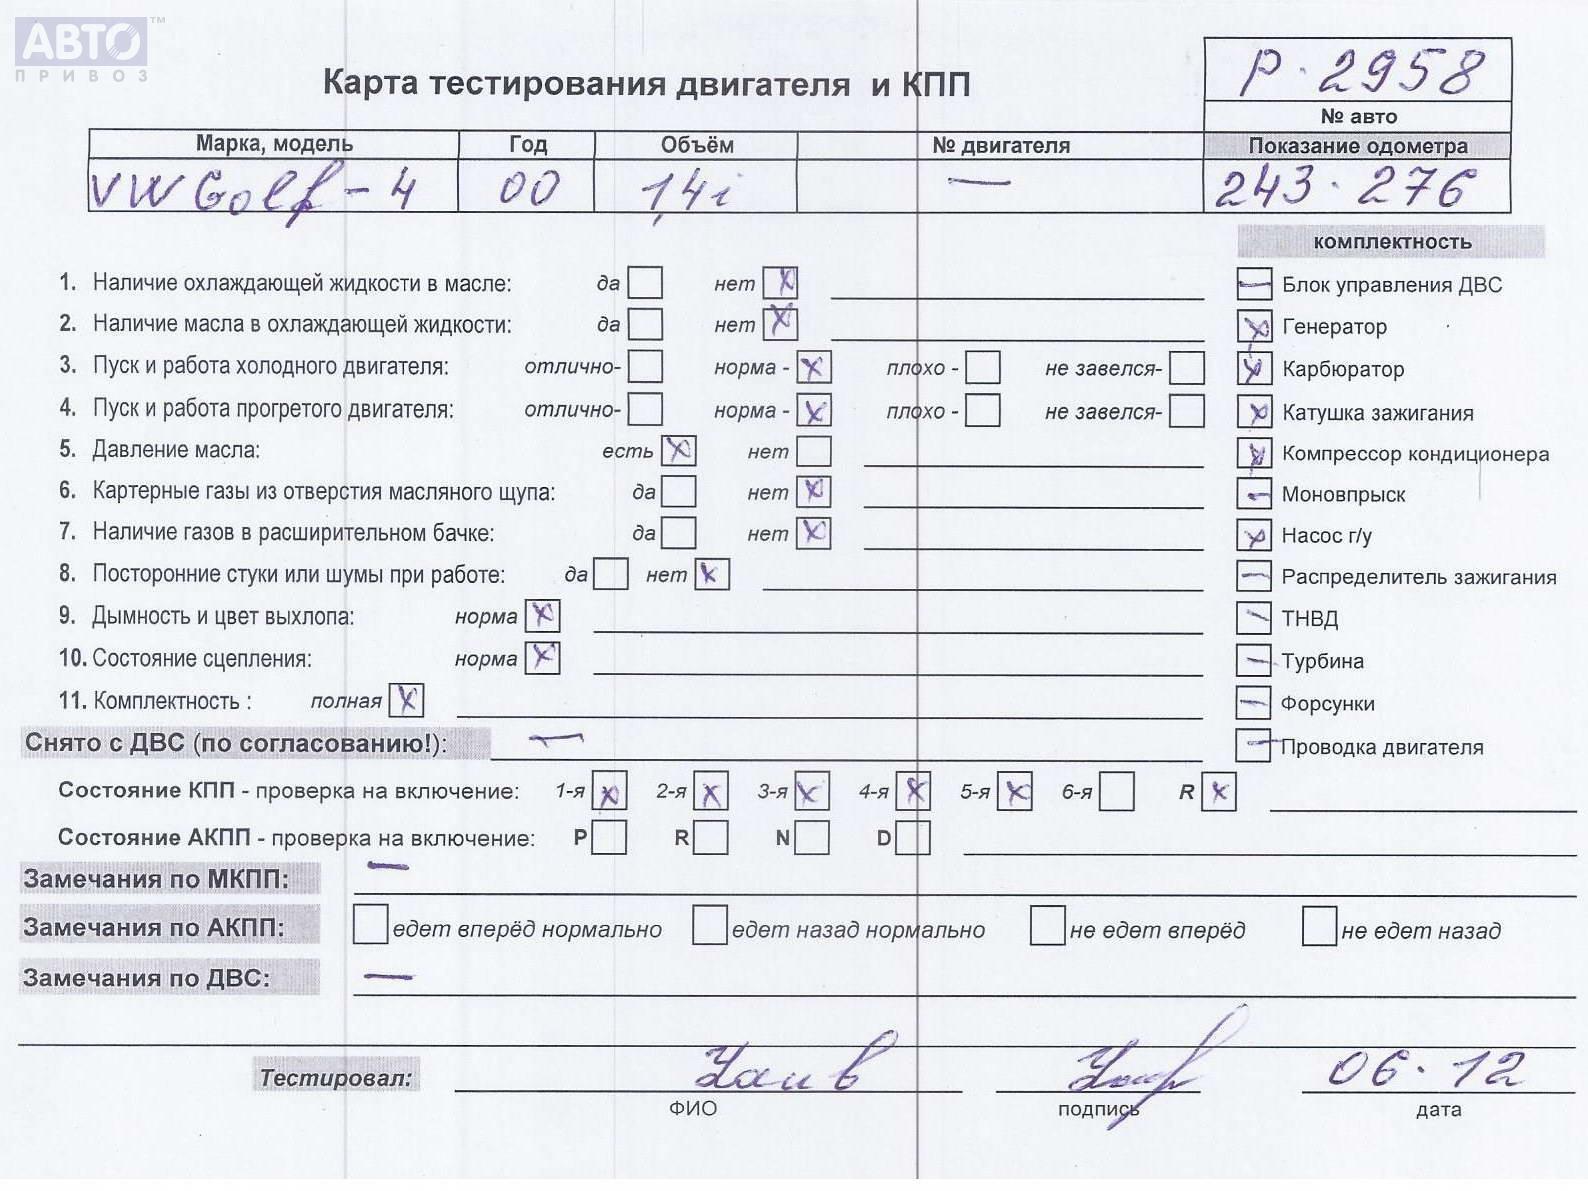 АВТО™
ПРИВОЗ
Карта тестирования двигателя и КПП
Р-2958
№ авто
Марка, модель Год Объём № двигателя Показание одометра
VW Golf-4 00 1,4i — 243.276
комплектность
1. Наличие охлаждающей жидкости в масле: да нет X
2. Наличие масла в охлаждающей жидкости: да нет X
3. Пуск и работа холодного двигателя: отлично- норма - X плохо - не завелся-
4. Пуск и работа прогретого двигателя: отлично- норма - X плохо - не завелся-
5. Давление масла: есть X нет
6. Картерные газы из отверстия масляного щупа: да нет X
7. Наличие газов в расширительном бачке: да нет X
8. Посторонние стуки или шумы при работе: да нет X
9. Дымность и цвет выхлопа: норма X
10. Состояние сцепления: норма X
11. Комплектность : полная X
— Блок управления ДВС
X Генератор
X Карбюратор
X Катушка зажигания
X Компрессор кондиционера
— Моновпрыск
X Насос г/у
— Распределитель зажигания
— ТНВД
— Турбина
— Форсунки
— Проводка двигателя
Снято с ДВС (по согласованию!): —
Состояние КПП - проверка на включение: 1-я X 2-я X 3-я X 4-я X 5-я X 6-я R X
Состояние АКПП - проверка на включение: P R N D
Замечания по МКПП: —
Замечания по АКПП: едет вперёд нормально едет назад нормально не едет вперёд не едет назад
Замечания по ДВС: —
Тестировал: 06.12
ФИО подпись дата